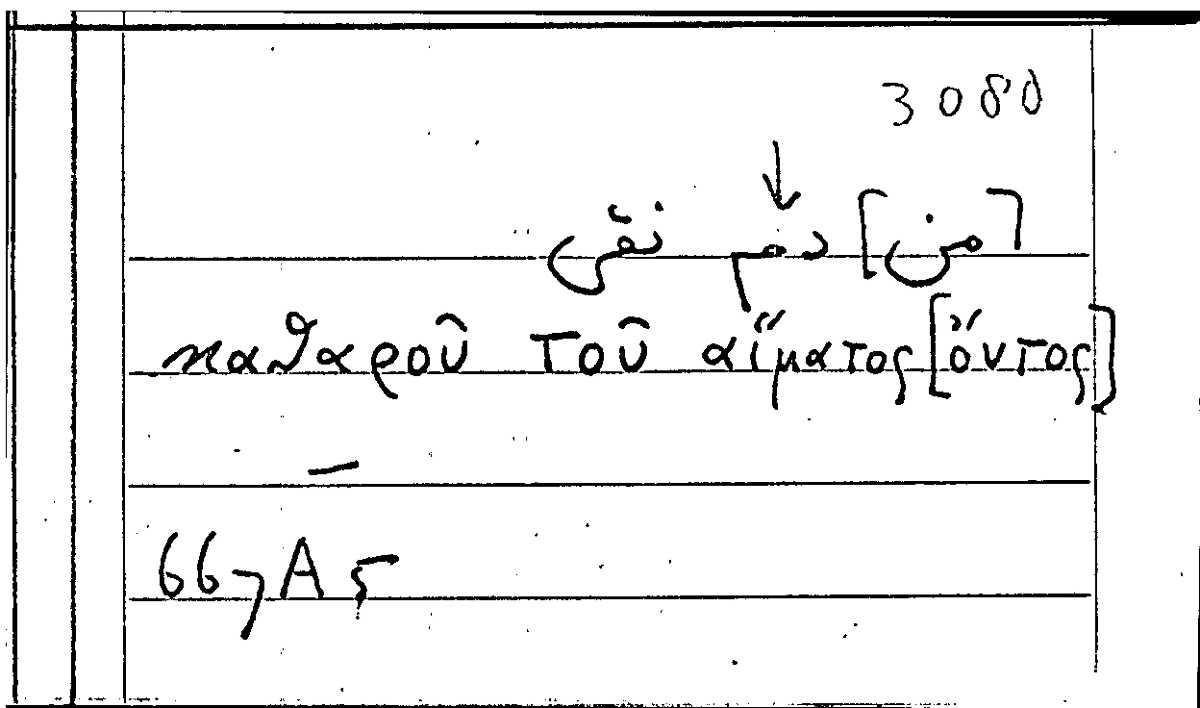 3080
↓
[من] دم نقى
καθαροῦ τοῦ αἵματος [ὄντος]
–
667A5